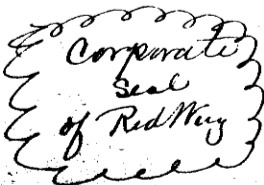 Corporate
Seal
of Red Wing